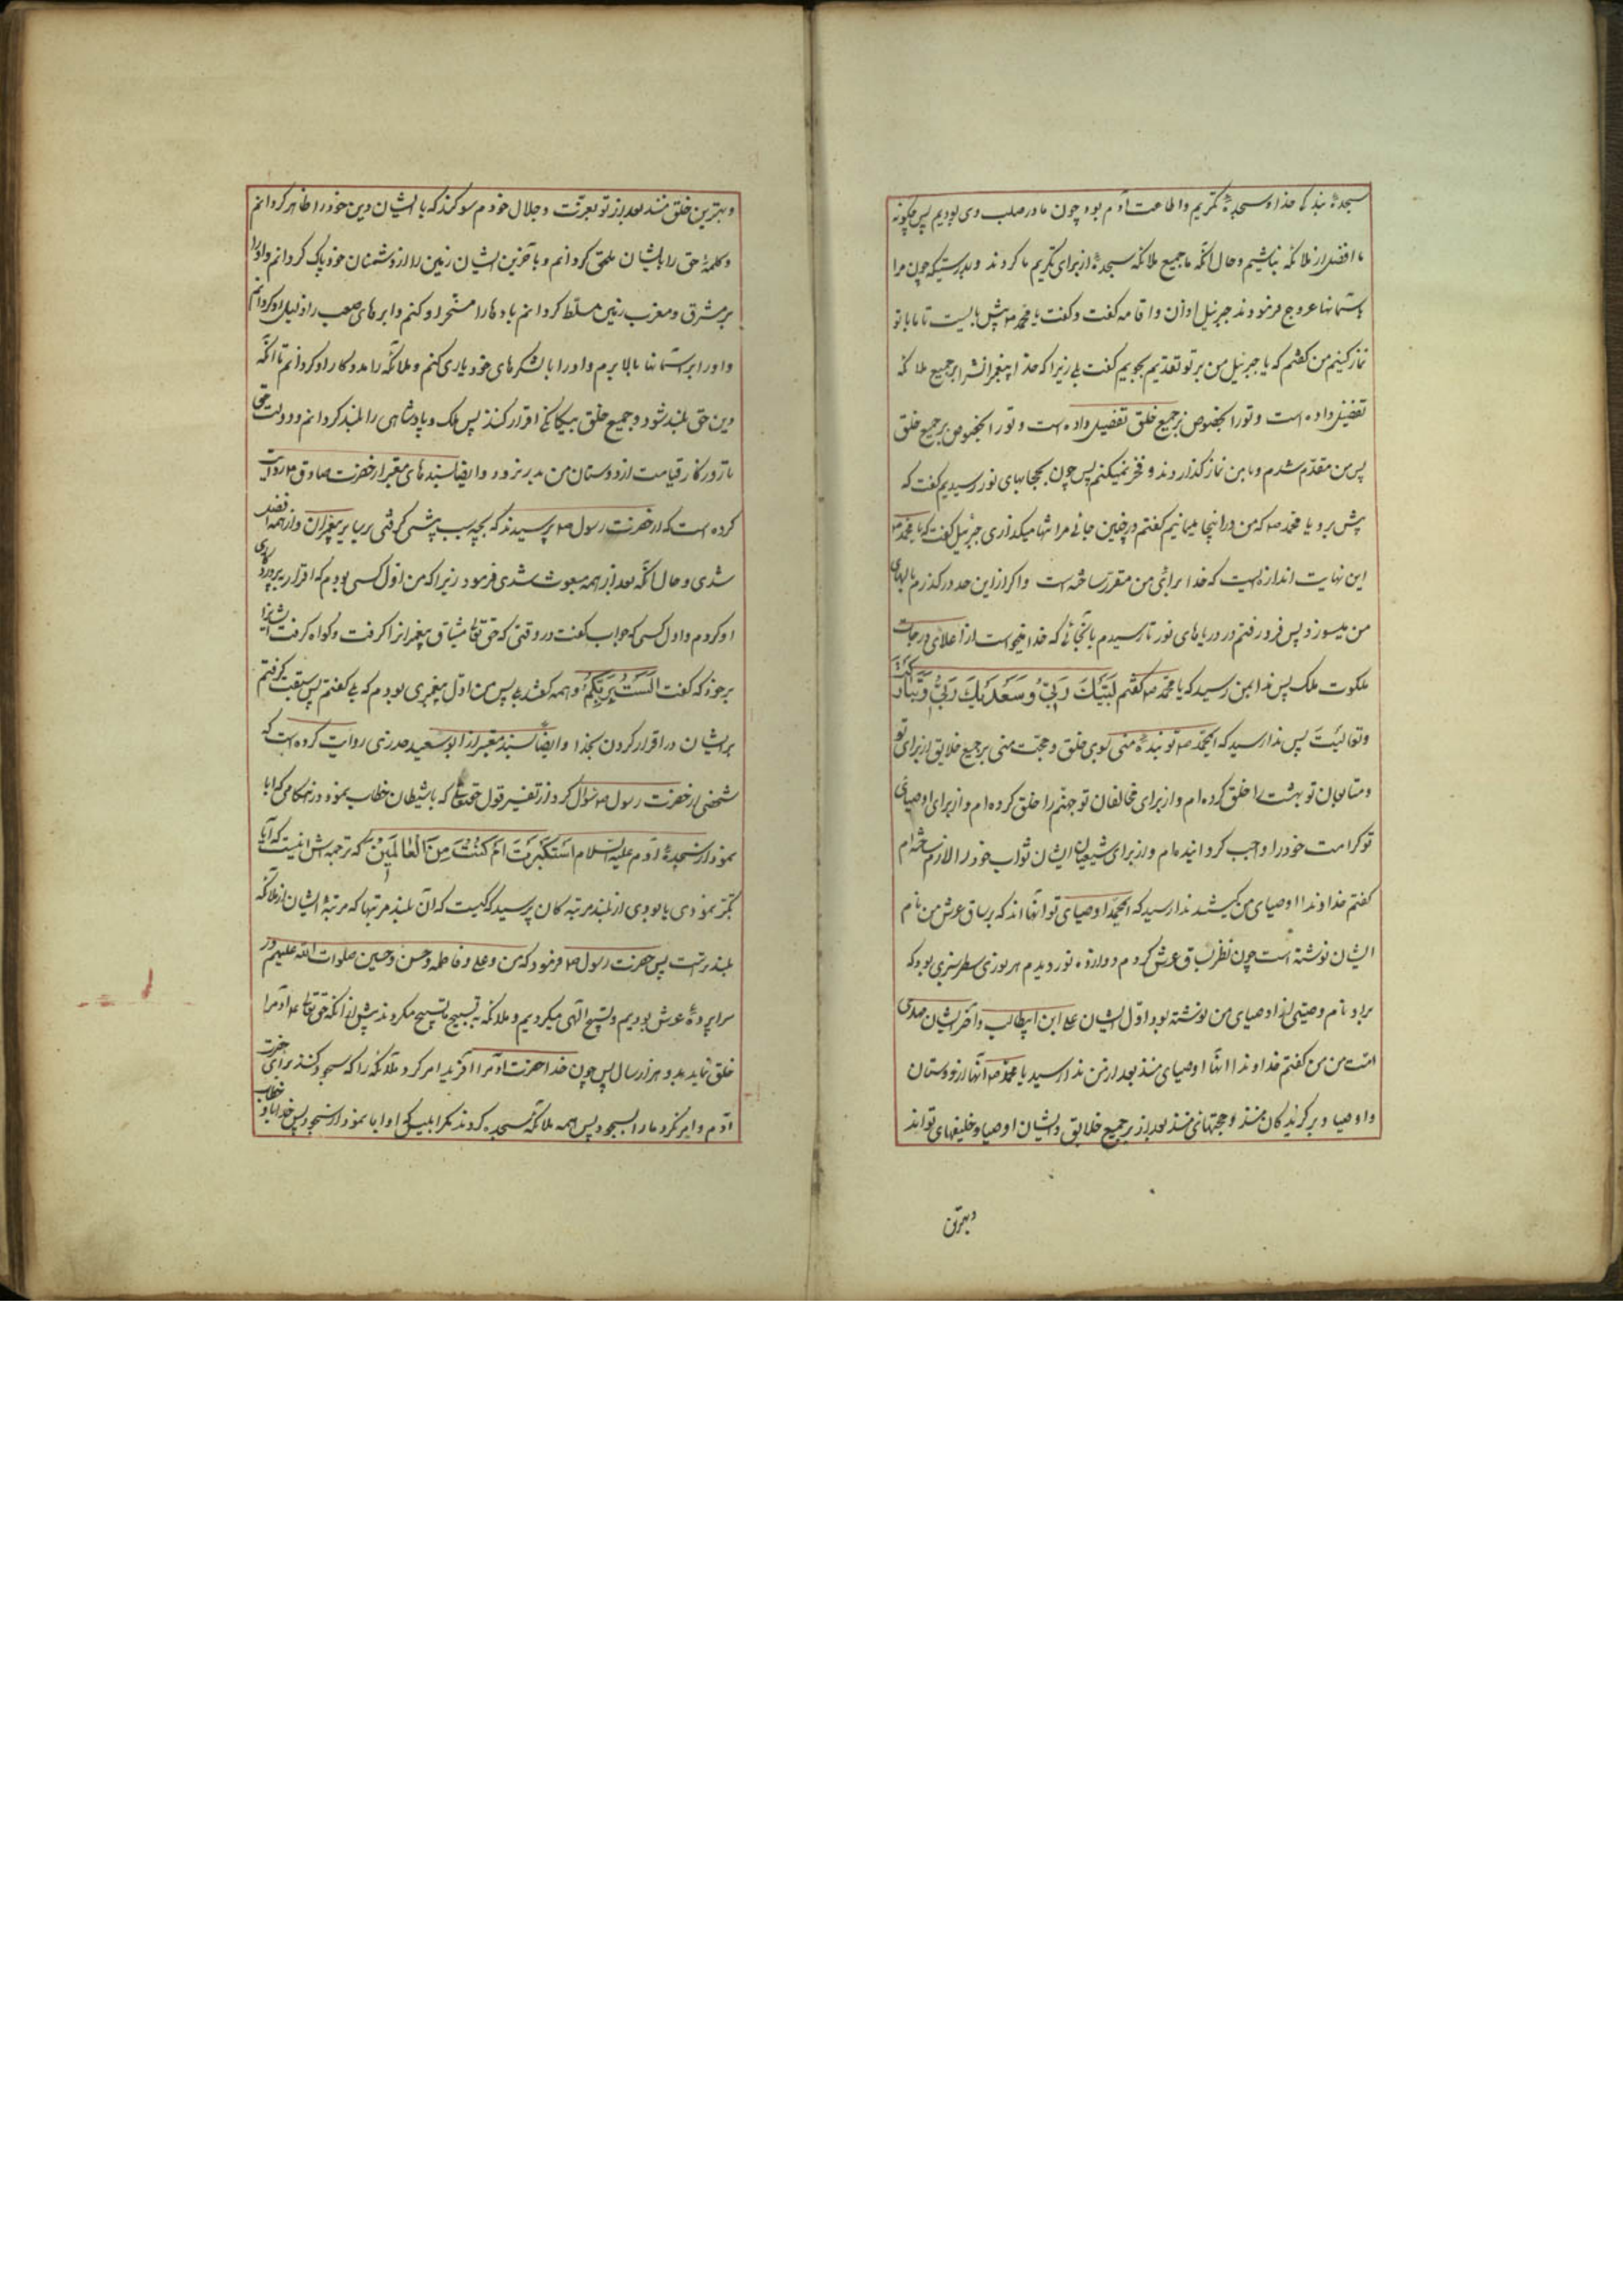 سجدهٔ بندگی خدا و سجدهٔ تکریم و اطاعت آدم بود چون ما در صلب وی بودیم پس چگونه
ما افضل از ملائکه نباشیم و حال آنکه جمیع ملائکه سجده از برای تکریم ما کردند و بدرستیکه چون مرا
بآسمانها عروج فرمودند جبرئیل اذان و اقامه گفت و گفت یا محمد ص پیش بایست تا ما با تو
نماز کنیم من گفتم که یا جبرئیل من بر تو تقدیم بجویم گفت بلی زیرا که خدا پیغمبرانش را بر جمیع ملائکه
تفضیل داده است و تو را بخصوص بر جمیع خلق تفضیل داده است و تو را بخصوص بر جمیع خلق
پس من مقدم شدم و با من نماز گذاردند و فخر نمیکنم پس چون بحجابهای نور رسیدیم گفت که
پیش برو یا محمد ص که من در اینجا میمانیم گفتم در چنین جائی مرا تنها میگذاری جبرئیل گفت که یا محمد ص
این نهایت اندازه ایست که خدا برای من مقرر ساخته است و اگر از این حد در گذرم بالهای
من میسوزد پس فرو رفتم در دریاهای نور تا رسیدم بآنجائی که خدا میخواست از اعلای درجات
ملکوت ملک پس ندا بمن رسید که یا محمد ص گفتم لَبَّیْکَ رَبّی وَسَعْدَیْکَ رَبّی تبارکت
و تعالیت پس ندا رسید که ای محمد ص تو بندهٔ منی توی خلق و حجت منی بر جمیع خلایق از برای تو
و متابعان تو بهشت را خلق کرده ام و از برای مخالفان تو جهنم را خلق کرده ام و از برای اوصیای
تو کرامت خود را واجب گردانیده ام و از برای شیعیان ایشان ثواب خود را لازم ساخته ام
گفتم خداوندا اوصیای من کیستند ندا رسید که ای محمد اوصیای تو آنها اند که بر ساق عرش من نام
ایشان نوشته است چون نظر بساق عرش کردم دوازده نور دیدم هر نوری سطر سبزی بود که
بر او نام وصیتی از اوصیای من نوشته بود اول ایشان علی ابن ابیطالب و آخر ایشان مهدی
امت من من گفتم خداوندا اینها اوصیای منند بعد از من ندا رسید یا محمد ص آنها از دوستان
و اوصیا و برگزیدگان منند و حجتهای منند بعد از تو بر جمیع خلایق و ایشان اوصیا و خلیفهای تو اند
و بهترین
و بهترین خلق منند بعد از تو بعزت و جلال خودم سوگند که بایشان دین خود را ظاهر گردانم
و کلمهٔ حق را بایشان ملحق گردانم و بآخرین ایشان زمین را از دشمنان خود پاک گردانم و او را
بر مشرق و مغرب زمین مسلط گردانم بادها را مسخر او کنم و ابرهای صعب را ذلیل او گردانم
و او را بر آسمانها بالا برم و او را با لشکرهای خود یاری کنم و ملائکه را مددکار او گردانم تا آنکه
دین حق بلند شود و جمیع خلق بیگانگی اقرار کنند پس ملک و پادشاهی را بلند گردانم و دولت حق
تا روزگار قیامت از دوستان من بدر نرود و ایضا بسندهای معتبر از حضرت صادق ع روایت
کرده است که از حضرت رسول ص پرسیدند که بچه سبب پیشی گرفتی بر سایر پیغمبران و از همه افضل
شدی و حال آنکه بعد از همه مبعوث شدی فرمود زیرا که من اول کسی بودم که اقرار بپروردگاری
او کردم و اول کسی که جواب گفت در وقتی که حق تعالی میثاق پیغمبرانرا گرفت و گواه گرفت ایشانرا
بر خود که گفت اَلَسْتُ بِرَبِّکُم و همه گفتند بلی پس من اول پیغمبری بودم که بلی گفتم پس سبقت گرفتم
بر ایشان در اقرار کردن بخدا و ایضا بسند معتبر از ابو سعید خدری روایت کرده است که
شخصی از حضرت رسول ص سؤال کرد از تفسیر قول حقتعالی که با شیطان خطاب نمود در هنگامی که ابا
نمود از سجدهٔ آدم علیه السلام اَسْتَکْبَرْتَ اَمْ کُنْتَ مِنَ الْعالَمینَ که ترجمه اش اینست که آیا
تکبر نمودی یا بودی از بلند مرتبه گان پرسید که کیست که آن بلند مرتبها که مرتبهٔ ایشان از ملائکه
بلندتر است پس حضرت رسول ص فرمود که من و علی و فاطمه و حسن و حسین صلوات الله علیهم در
سراپردهٔ عرش بودیم و تسبیح الهی میکردیم و ملائکه به تسبیح ما تسبیح میکردند پیش از آنکه حق تعالی آدم را
خلق نماید بدو هزار سال پس چون خدا حضرت آدم را آفرید امر کرد ملائکه را که سجود کنند برای حضرت
آدم و امر نکرد ما را بسجود پس همه ملائکه سجده کردند مگر ابلیس که او ابا نمود از سجود پس خدا باو خطاب